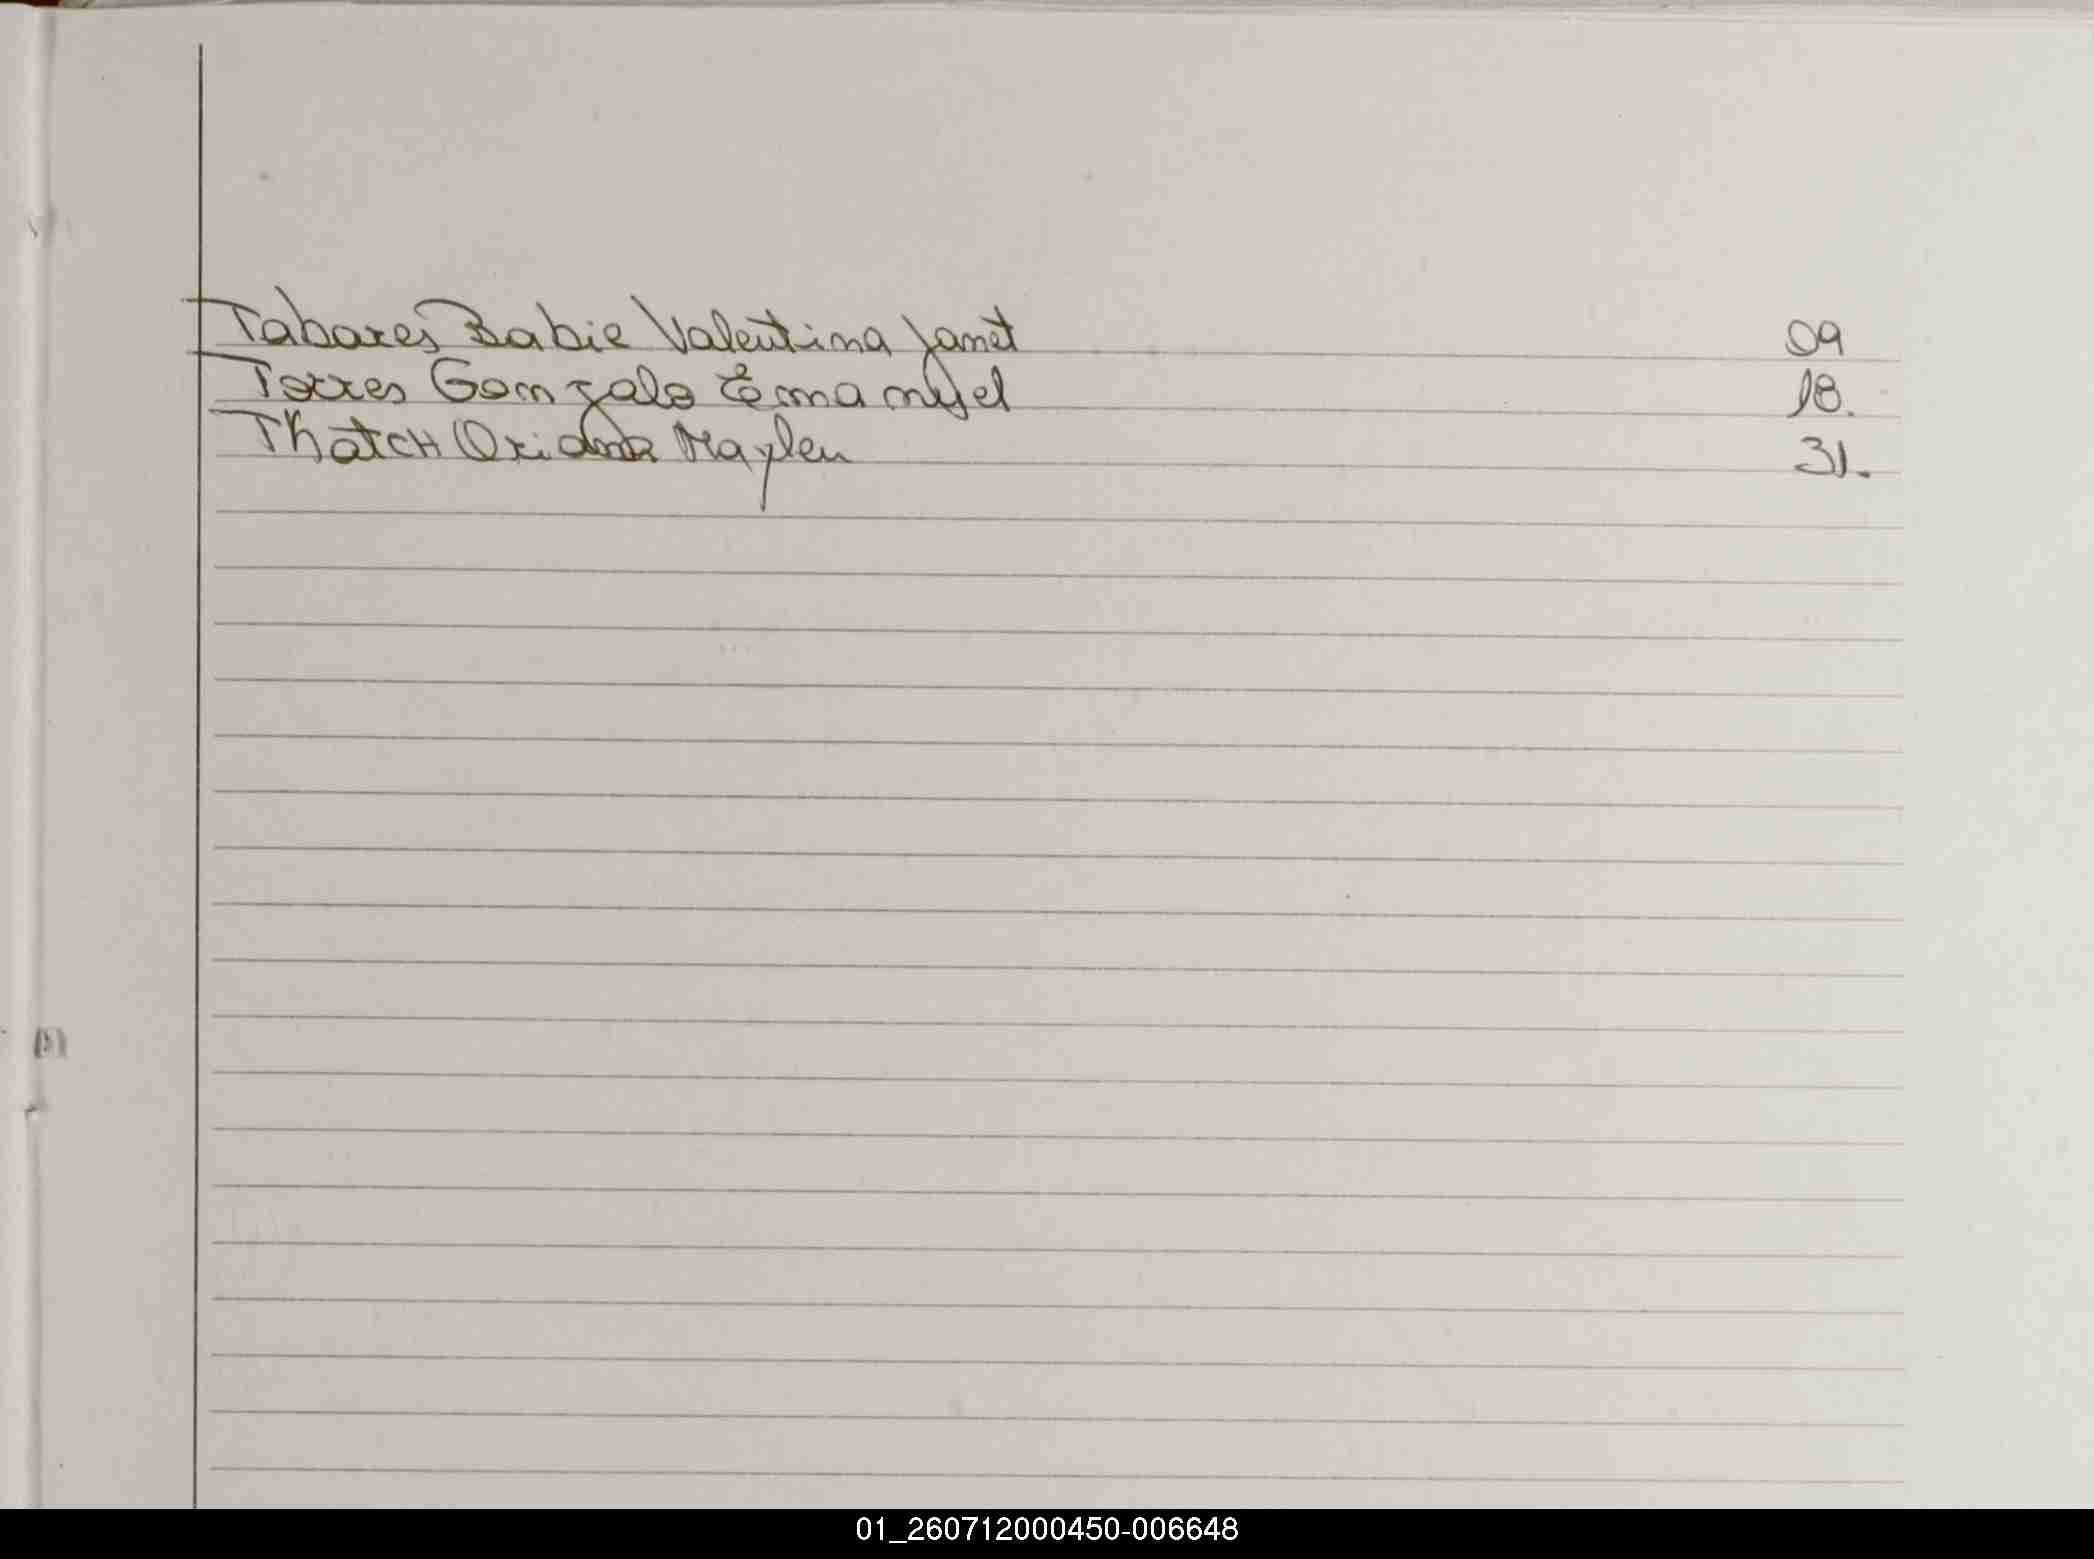 Tabares Babie Valentina Janet 09
Torres Gonzalo Emanuel 18.
Thatch Oriana Maylen 31.
01_260712000450-006648